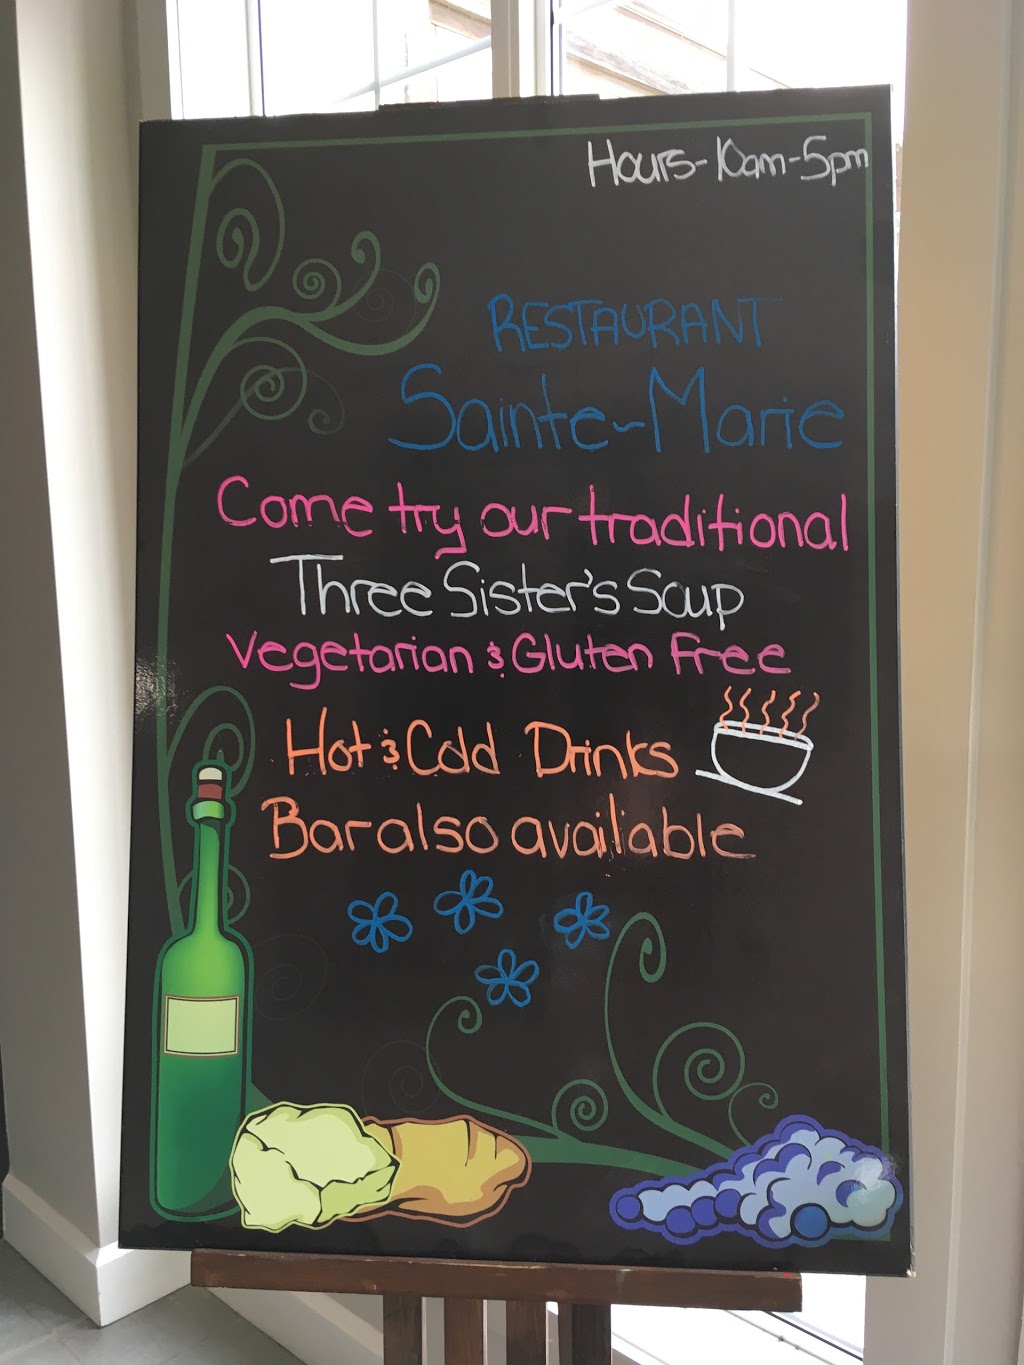 Hours-10am-5pm
RESTAURANT
Sainte-Marie
Come try our traditional
Three Sister's Soup
Vegetarian & Gluten Free
Hot & Cold Drinks
Bar also available